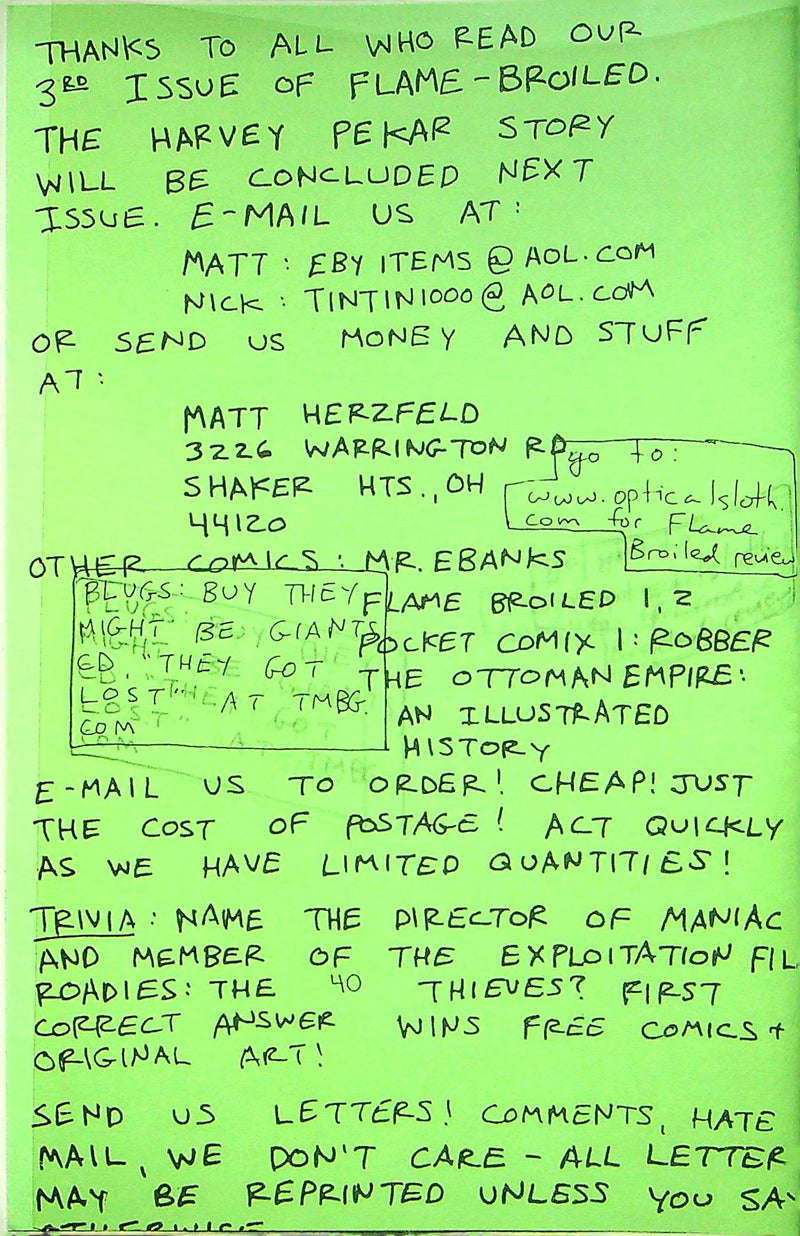 THANKS TO ALL WHO READ OUR
3RD ISSUE OF FLAME-BROILED.
THE HARVEY PEKAR STORY
WILL BE CONCLUDED NEXT
ISSUE. E-MAIL US AT:
MATT: EBY ITEMS @ AOL.COM
NICK: TINTIN1000@ AOL.COM
OR SEND US MONEY AND STUFF
AT:
MATT HERZFELD
3226 WARRINGTON RD
SHAKER HTS., OH
44120
go to:
www.opticalsloth.
com for Flame
Broiled review
OTHER COMICS: MR. EBANKS
FLAME BROILED 1, 2
POCKET COMIX 1: ROBBER
THE OTTOMAN EMPIRE:
AN ILLUSTRATED
HISTORY
PLUGS: BUY THEY
MIGHT BE GIANTS
CD, "THEY GOT
LOST" AT TMBG.
COM
E-MAIL US TO ORDER! CHEAP! JUST
THE COST OF POSTAGE! ACT QUICKLY
AS WE HAVE LIMITED QUANTITIES!
TRIVIA: NAME THE DIRECTOR OF MANIAC
AND MEMBER OF THE EXPLOITATION FIL
ROADIES: THE 40 THIEVES? FIRST
CORRECT ANSWER WINS FREE COMICS +
ORIGINAL ART!
SEND US LETTERS! COMMENTS, HATE
MAIL, WE DON'T CARE - ALL LETTER
MAY BE REPRINTED UNLESS YOU SA